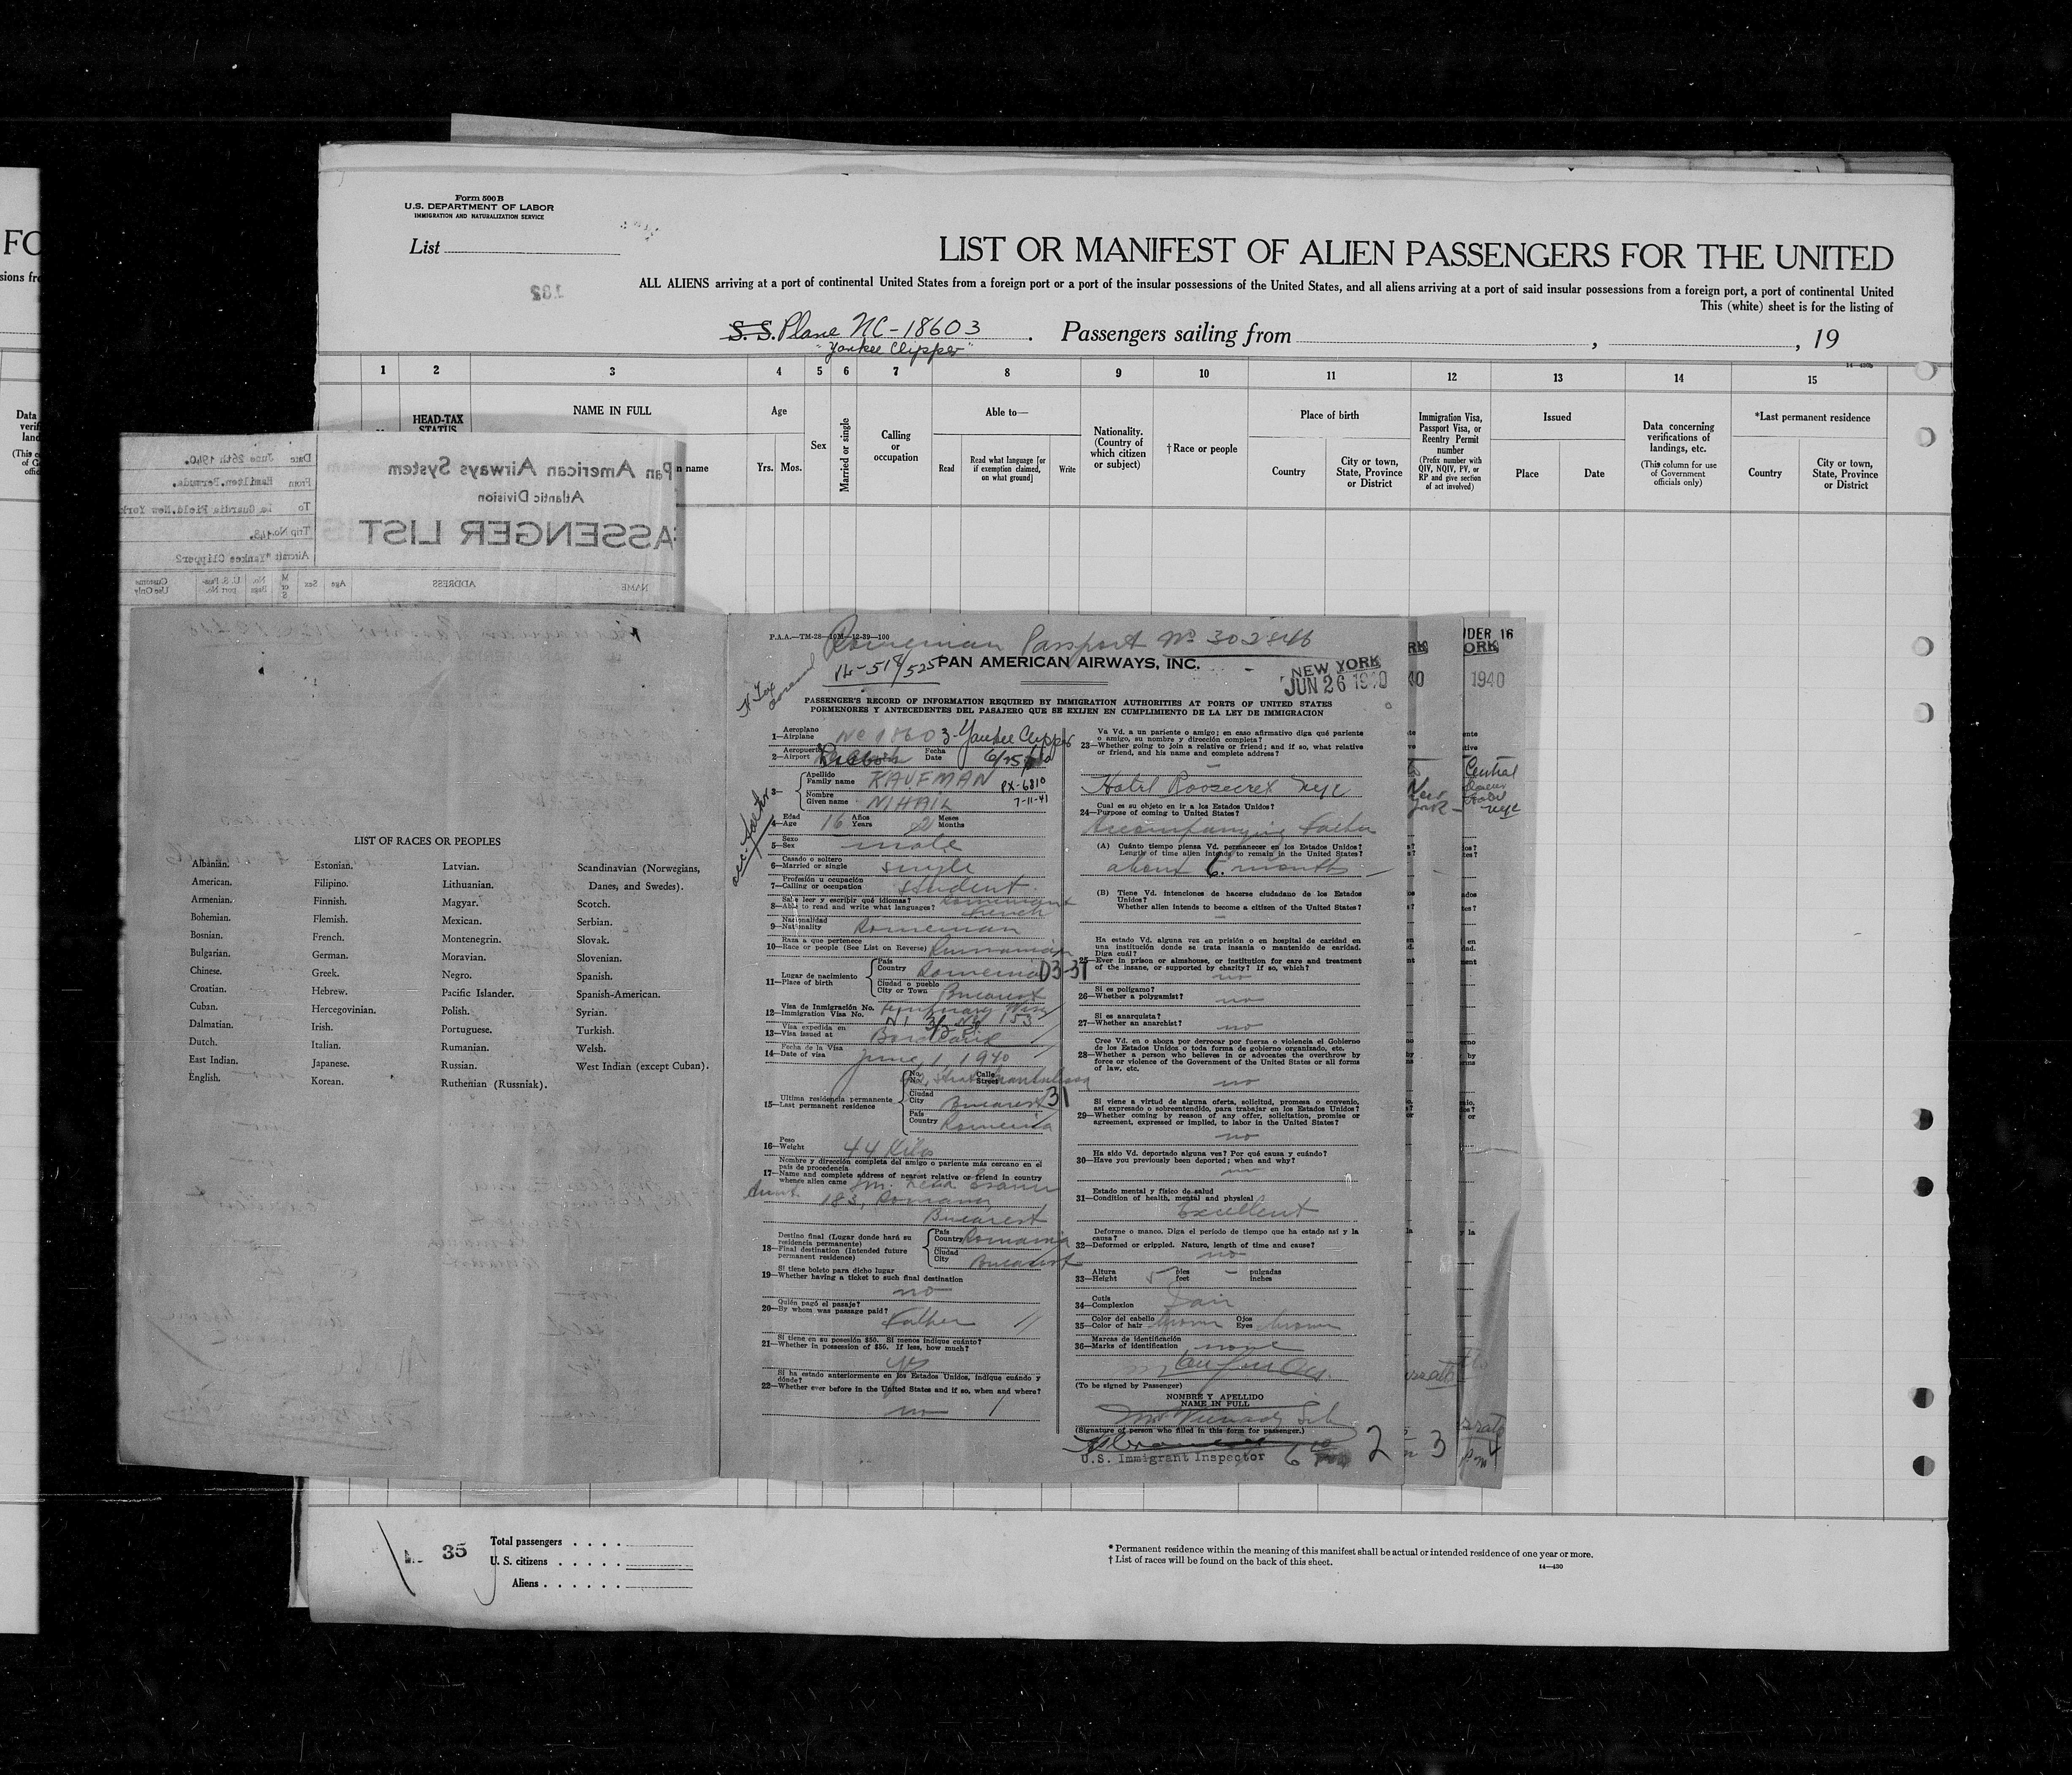 FO
sions fr
Data
verif
land
(This c
of G
offic
Form 500 B
U.S. DEPARTMENT OF LABOR
IMMIGRATION AND NATURALIZATION SERVICE
List
132
LIST OR MANIFEST OF ALIEN PASSENGERS FOR THE UNITED
ALL ALIENS arriving at a port of continental United States from a foreign port or a part of the insular possessions of the United States, and all aliens arriving at a port of said insular possessions from a foreign port, a port of continental United
This (white) sheet is for the listing of
S. S. Plane NC-18603. Passengers sailing from , , 19
"Yankee Clipper"
14—430b
1 2 3 4 5 6 7 8 9 10 11 12 13 14 15
HEAD-TAX STATUS
NAME IN FULL
n name
Age
Yrs. Mos.
Sex
Married or single
Calling or occupation
Able to—
Read
Read what language [or if exemption claimed, on what ground]
Write
Nationality. (Country of which citizen or subject)
†Race or people
Place of birth
Country
City or town, State, Province or District
Immigration Visa, Passport Visa, or Reentry Permit number
(Prefix number with QIV, NQIV, PV, or RP and give section of act involved)
Issued
Place
Date
Data concerning verifications of landings, etc.
(This column for use of Government officials only)
*Last permanent residence
Country
City or town, State, Province or District
Pan American Airways System
Atlantic Division
PASSENGER LIST
Date June 26th 1940.
From Hamilton, Bermuda.
To La Guardia Field, New York
Trip No. 143.
Aircraft "Yankee Clipper"
NAME ADDRESS Age Sex M or S No. Bags U. S. Pass-port No. Customs Use Only
LIST OF RACES OR PEOPLES
Albanian.
American.
Armenian.
Bohemian.
Bosnian.
Bulgarian.
Chinese.
Croatian.
Cuban.
Dalmatian.
Dutch.
East Indian.
English.
Estonian.
Filipino.
Finnish.
Flemish.
French.
German.
Greek.
Hebrew.
Hercegovinian.
Irish.
Italian.
Japanese.
Korean.
Latvian.
Lithuanian.
Magyar.
Mexican.
Montenegrin.
Moravian.
Negro.
Pacific Islander.
Polish.
Portuguese.
Rumanian.
Russian.
Ruthenian (Russniak).
Scandinavian (Norwegians,
Danes, and Swedes).
Scotch.
Serbian.
Slovak.
Slovenian.
Spanish.
Spanish-American.
Syrian.
Turkish.
Welsh.
West Indian (except Cuban).
P.A.A.—TM-28—10M—12-39—100
Romenian Passport No 302846
14-518/525
PAN AMERICAN AIRWAYS, INC.
NEW YORK
JUN 26 1940
PASSENGER'S RECORD OF INFORMATION REQUIRED BY IMMIGRATION AUTHORITIES AT PORTS OF UNITED STATES
PORMENORES Y ANTECEDENTES DEL PASAJERO QUE SE EXIJEN EN CUMPLIMIENTO DE LA LEY DE IMMIGRACION
acc. father
Aeroplano
1—Airplane NC 18603 - Yankee Clipper
Aeropuerto Fecha
2—Airport Date 6/25
3— Apellido
Family name KAUFMAN PX-6810
Nombre
Given name MIHAIL 7-11-41
Edad Años Meses
4—Age 16 Years 2 Months
Sexo
5—Sex male
Casado o soltero
6—Married or single single
Profesión u ocupación
7—Calling or occupation student
Sabe leer y escribir qué idiomas?
8—Able to read and write what languages?
french
Nacionalidad
9—Nationality Romenian
Raza a que pertenece
10—Race or people (See List on Reverse) Rumanian
País
Country Romenia D3-31
Lugar de nacimiento
11—Place of birth
Ciudad o pueblo
City or Town Bucarest
Visa de Inmigración No.
12—Immigration Visa No. temporary Visa
153
Visa expedida en
13—Visa issued at
Fecha de la Visa
14—Date of visa June 1 1940
No. Calle
Street
Ultima residencia permanente
15—Last permanent residence
Ciudad
City Bucarest 31
País
Country Romenia
Peso
16—Weight 44 Kilos
Nombre y dirección completa del amigo o pariente más cercano en el
país de procedencia
17—Name and complete address of nearest relative or friend in country
whence alien came
Aunt 183, Romana
Bucarest
Destino final (Lugar donde hará su
residencia permanente)
18—Final destination (Intended future
permanent residence)
País
Country Romania
Ciudad
City Bucarest
Si tiene boleto para dicho lugar
19—Whether having a ticket to such final destination
no
Quién pagó el pasaje?
20—By whom was passage paid?
Father
Si tiene en su posesión $50. Si menos indique cuánto?
21—Whether in possession of $50. If less, how much?
yes
Si ha estado anteriormente en los Estados Unidos, indique cuándo y
dónde?
22—Whether ever before in the United States and if so, when and where?
no
Va Vd. a un pariente o amigo; en caso afirmativo diga qué pariente
o amigo, su nombre y dirección completa?
23—Whether going to join a relative or friend; and if so, what relative
or friend, and his name and complete address?
Hotel Roosevelt nyc
Cual es su objeto en ir a los Estados Unidos?
24—Purpose of coming to United States?
Accompanying Father
(A) Cuánto tiempo piensa Vd. permanecer en los Estados Unidos?
Length of time alien intends to remain in the United States?
about 6 months
(B) Tiene Vd. intenciones de hacerse ciudadano de los Estados
Unidos?
Whether alien intends to become a citizen of the United States?
Ha estado Vd. alguna vez en prisión o en hospital de caridad en
una institución donde se trata insania o mantenido de caridad.
Diga cuál?
25—Ever in prison or almshouse, or institution for care and treatment
of the insane, or supported by charity? If so, which?
no
Si es polígamo?
26—Whether a polygamist?
no
Si es anarquista?
27—Whether an anarchist?
no
Cree Vd. en o aboga por derrocar por fuerza o violencia el Gobierno
de los Estados Unidos o toda forma de gobierno organizado, etc.
28—Whether a person who believes in or advocates the overthrow by
force or violence of the Government of the United States or all forms
of law, etc.
no
Si viene a virtud de alguna oferta, solicitud, promesa o convenio,
así expresado o sobreentendido, para trabajar en los Estados Unidos?
29—Whether coming by reason of any offer, solicitation, promise or
agreement, expressed or implied, to labor in the United States?
no
Ha sido Vd. deportado alguna vez? Por qué causa y cuándo?
30—Have you previously been deported; when and why?
no
Estado mental y físico de salud
31—Condition of health, mental and physical
Excellent
Deforme o manco. Diga el período de tiempo que ha estado así y la
causa?
32—Deformed or crippled. Nature, length of time and cause?
no
Altura pies pulgadas
33—Height 5 feet - inches
Cutis
34—Complexion Fair
Color del cabello Ojos
35—Color of hair brown Eyes brown
Marcas de identificación
36—Marks of identification none
(To be signed by Passenger)
NOMBRE Y APELLIDO
NAME IN FULL
(Signature of person who filled in this form for passenger.)
U.S. Immigrant Inspector
2
3
4
UNDER 16
1940
Central
nyc
35
Total passengers . . . .
U. S. citizens . . . . .
Aliens . . . . . .
* Permanent residence within the meaning of this manifest shall be actual or intended residence of one year or more.
† List of races will be found on the back of this sheet.
14—430